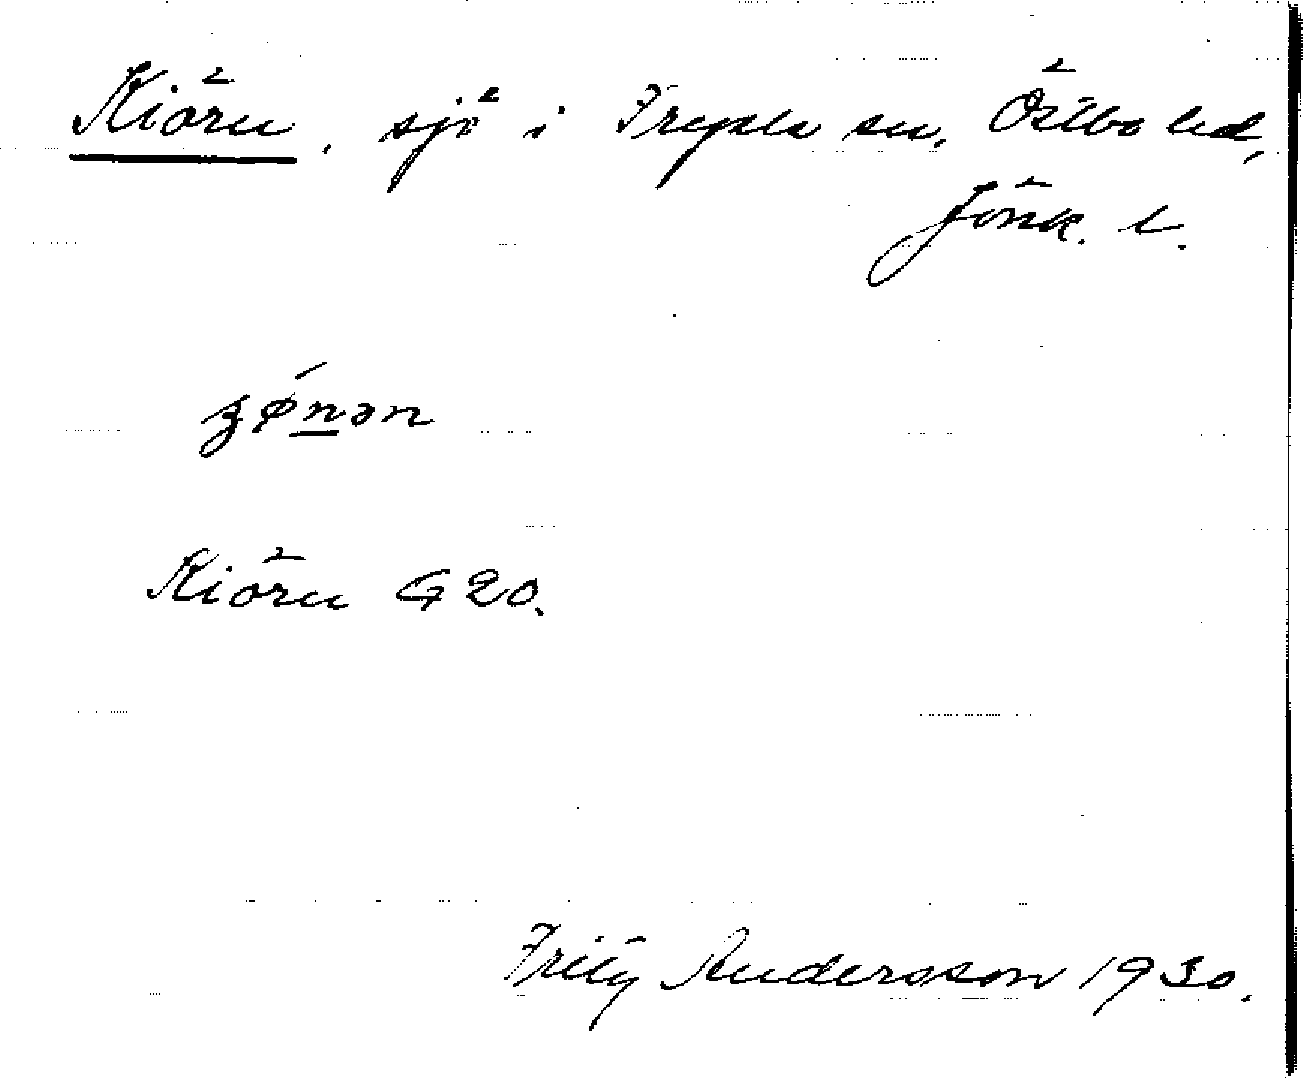 Kiörn, sjö i Fryele sn, Östbo hd,
Jönk. l.
Kiörn G 20.
Fritz Andersson 1930.